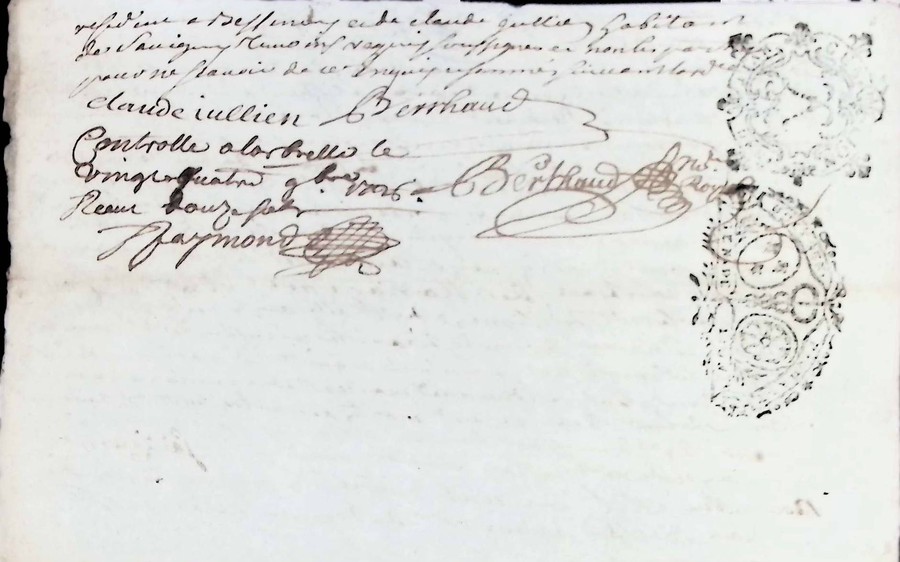 résident a Bessenay et de claude Jullien habitant
de Savigny temoins requis soussignes et non les parties
pour ne scavoir de ce enquis et sommés suivant l'ord
claude iullien Berthaud
Controlle a larbrelle le
vingt quatre 9bre
Receu douze sols Berthaud no.re Royal
Raymond